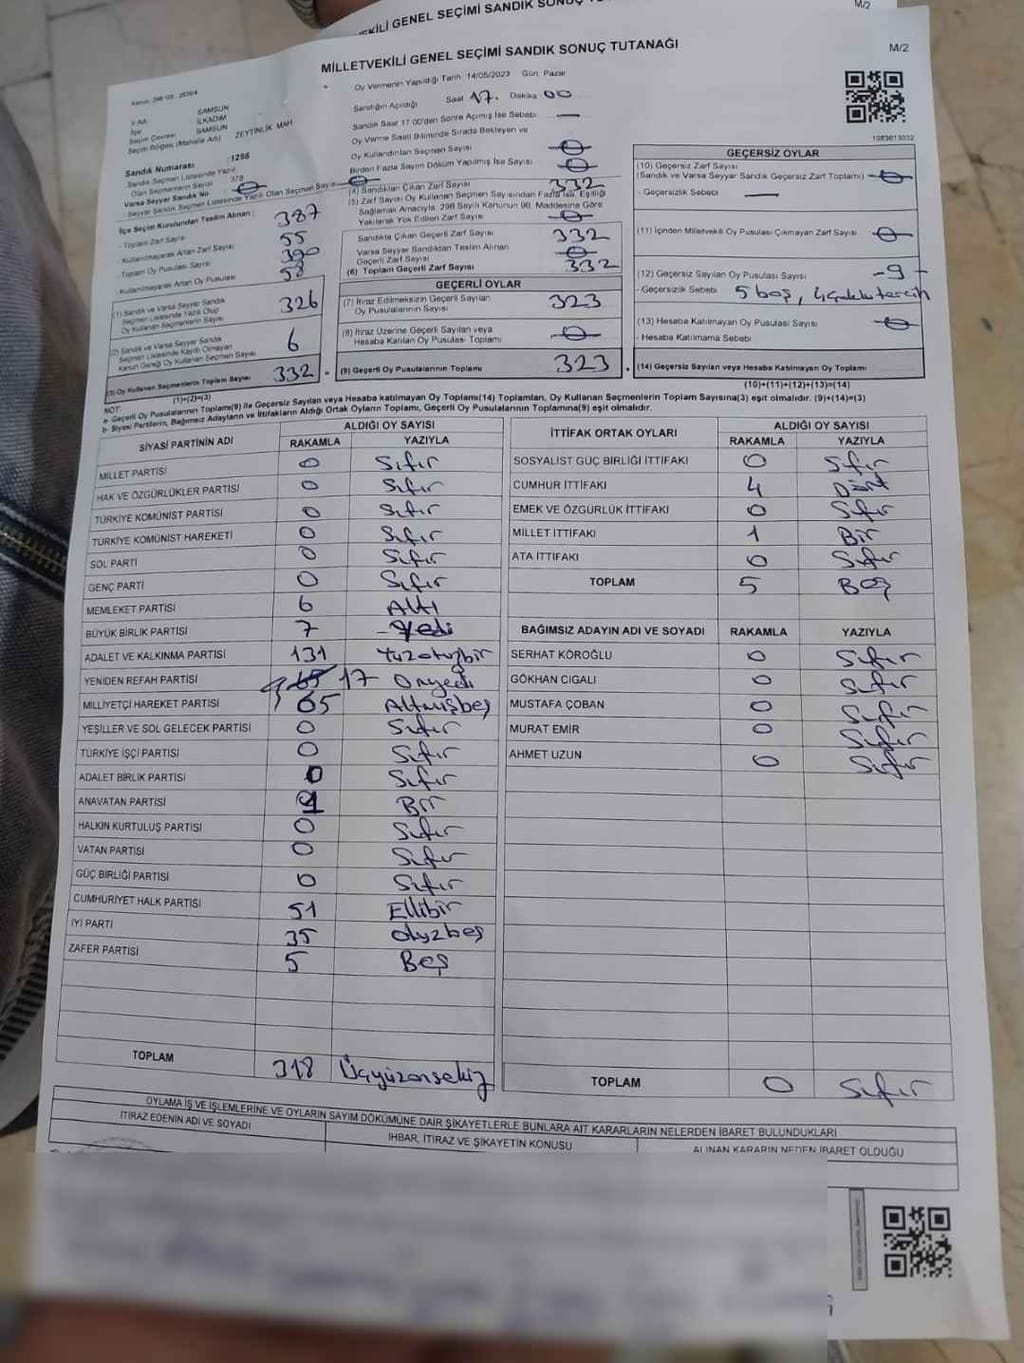 EKİLİ GENEL SEÇİMİ SANDIK SONUÇ TU
M/2
MİLLETVEKİLİ GENEL SEÇİMİ SANDIK SONUÇ TUTANAĞI
M/2
Oy Vermenin Yapıldığı Tarih 14/05/2023 Gün Pazar
İl Adı SAMSUN
İlçe İLKADIM
Seçim Çevresi SAMSUN
Seçim Bölgesi (Mahalle Adı) ZEYTİNLİK MAH
Sandık Numarası :1295
Sandık Seçmen Listesinde Yazılı
Olan Seçmenlerin Sayısı 378
Varsa Seyyar Sandık No
Seyyar Sandık Seçmen Listesinde Yazılı Olan Seçmen Sayısı
İlçe Seçim Kurulundan Teslim Alınan :
- Toplam Zarf Sayısı 387
- Kullanılmayarak Artan Zarf Sayısı 55
- Toplam Oy Pusulası Sayısı 390
- Kullanılmayarak Artan Oy Pusulası 58
(1) Sandık ve Varsa Seyyar Sandık
Seçmen Listesinde Yazılı Olup
Oy Kullanan Seçmenlerin Sayısı 326
(2) Sandık ve Varsa Seyyar Sandık
Seçmen Listesinde Kayıtlı Olmayan
Kanun Gereği Oy Kullanan Seçmen Sayısı 6
(3) Oy Kullanan Seçmenlerin Toplam Sayısı 332
(1)+(2)=(3)
Sandığın Açıldığı Saat 17. Dakika 00
Sandık Saat 17.00'den Sonra Açılmış İse Sebebi —
Oy Verme Saati Bitiminde Sırada Bekleyen ve
Oy Kullandırılan Seçmen Sayısı
Birden Fazla Sayım Döküm Yapılmış İse Sayısı
(4) Sandıktan Çıkan Zarf Sayısı 332
(5) Zarf Sayısı Oy Kullanan Seçmen Sayısından Fazla İse, Eşitliği
Sağlamak Amacıyla, 298 Sayılı Kanunun 98. Maddesine Göre
Yakılarak Yok Edilen Zarf Sayısı
Sandıkta Çıkan Geçerli Zarf Sayısı 332
Varsa Seyyar Sandıktan Teslim Alınan
Geçerli Zarf Sayısı
(6) Toplam Geçerli Zarf Sayısı 332
GEÇERLİ OYLAR
(7) İtiraz Edilmeksizin Geçerli Sayılan
Oy Pusulalarının Sayısı 323
(8) İtiraz Üzerine Geçerli Sayılan veya
Hesaba Katılan Oy Pusulası Toplamı
(9) Geçerli Oy Pusulalarının Toplamı 323
1083613032
GEÇERSİZ OYLAR
(10) Geçersiz Zarf Sayısı
(Sandık ve Varsa Seyyar Sandık Geçersiz Zarf Toplamı)
- Geçersizlik Sebebi —
(11) İçinden Milletvekili Oy Pusulası Çıkmayan Zarf Sayısı
(12) Geçersiz Sayılan Oy Pusulası Sayısı -9-
- Geçersizlik Sebebi 5 boş, 4 çoklu tercih
(13) Hesaba Katılmayan Oy Pusulası Sayısı
- Hesaba Katılmama Sebebi
(14) Geçersiz Sayılan veya Hesaba Katılmayan Oy Toplamı
(10)+(11)+(12)+(13)=(14)
NOT:
a- Geçerli Oy Pusulalarının Toplamı(9) ile Geçersiz Sayılan veya Hesaba katılmayan Oy Toplamı(14) Toplamları, Oy Kullanan Seçmenlerin Toplam Sayısına(3) eşit olmalıdır. (9)+(14)=(3)
b- Siyasi Partilerin, Bağımsız Adayların ve İttifakların Aldığı Ortak Oyların Toplamı, Geçerli Oy Pusulalarının Toplamına(9) eşit olmalıdır.
SİYASİ PARTİNİN ADI ALDIĞI OY SAYISI
RAKAMLA YAZIYLA
MİLLET PARTİSİ 0 Sıfır
HAK VE ÖZGÜRLÜKLER PARTİSİ 0 Sıfır
TÜRKİYE KOMÜNİST PARTİSİ 0 Sıfır
TÜRKİYE KOMÜNİST HAREKETİ 0 Sıfır
SOL PARTİ 0 Sıfır
GENÇ PARTİ 0 Sıfır
MEMLEKET PARTİSİ 6 Altı
BÜYÜK BİRLİK PARTİSİ 7 Yedi
ADALET VE KALKINMA PARTİSİ 131 Yüzotuzbir
YENİDEN REFAH PARTİSİ 65 17 Onyedi
MİLLİYETÇİ HAREKET PARTİSİ 65 Altmışbeş
YEŞİLLER VE SOL GELECEK PARTİSİ 0 Sıfır
TÜRKİYE İŞÇİ PARTİSİ 0 Sıfır
ADALET BİRLİK PARTİSİ 0 Sıfır
ANAVATAN PARTİSİ 1 Bir
HALKIN KURTULUŞ PARTİSİ 0 Sıfır
VATAN PARTİSİ 0 Sıfır
GÜÇ BİRLİĞİ PARTİSİ 0 Sıfır
CUMHURİYET HALK PARTİSİ 51 Ellibir
İYİ PARTİ 35 Otuzbeş
ZAFER PARTİSİ 5 Beş
TOPLAM 318 Üçyüzonsekiz
İTTİFAK ORTAK OYLARI ALDIĞI OY SAYISI
RAKAMLA YAZIYLA
SOSYALİST GÜÇ BİRLİĞİ İTTİFAKI 0 Sıfır
CUMHUR İTTİFAKI 4 Dört
EMEK VE ÖZGÜRLÜK İTTİFAKI 0 Sıfır
MİLLET İTTİFAKI 1 Bir
ATA İTTİFAKI 0 Sıfır
TOPLAM 5 Beş
BAĞIMSIZ ADAYIN ADI VE SOYADI RAKAMLA YAZIYLA
SERHAT KÖROĞLU 0 Sıfır
GÖKHAN CIGALI 0 Sıfır
MUSTAFA ÇOBAN 0 Sıfır
MURAT EMİR 0 Sıfır
AHMET UZUN 0 Sıfır
TOPLAM 0 Sıfır
OYLAMA İŞ VE İŞLEMLERİNE VE OYLARIN SAYIM DÖKÜMÜNE DAİR ŞİKAYETLERLE BUNLARA AİT KARARLARIN NELERDEN İBARET BULUNDUKLARI
İTİRAZ EDENİN ADI VE SOYADI İHBAR, İTİRAZ VE ŞİKAYETİN KONUSU ALINAN KARARIN NEDEN İBARET OLDUĞU